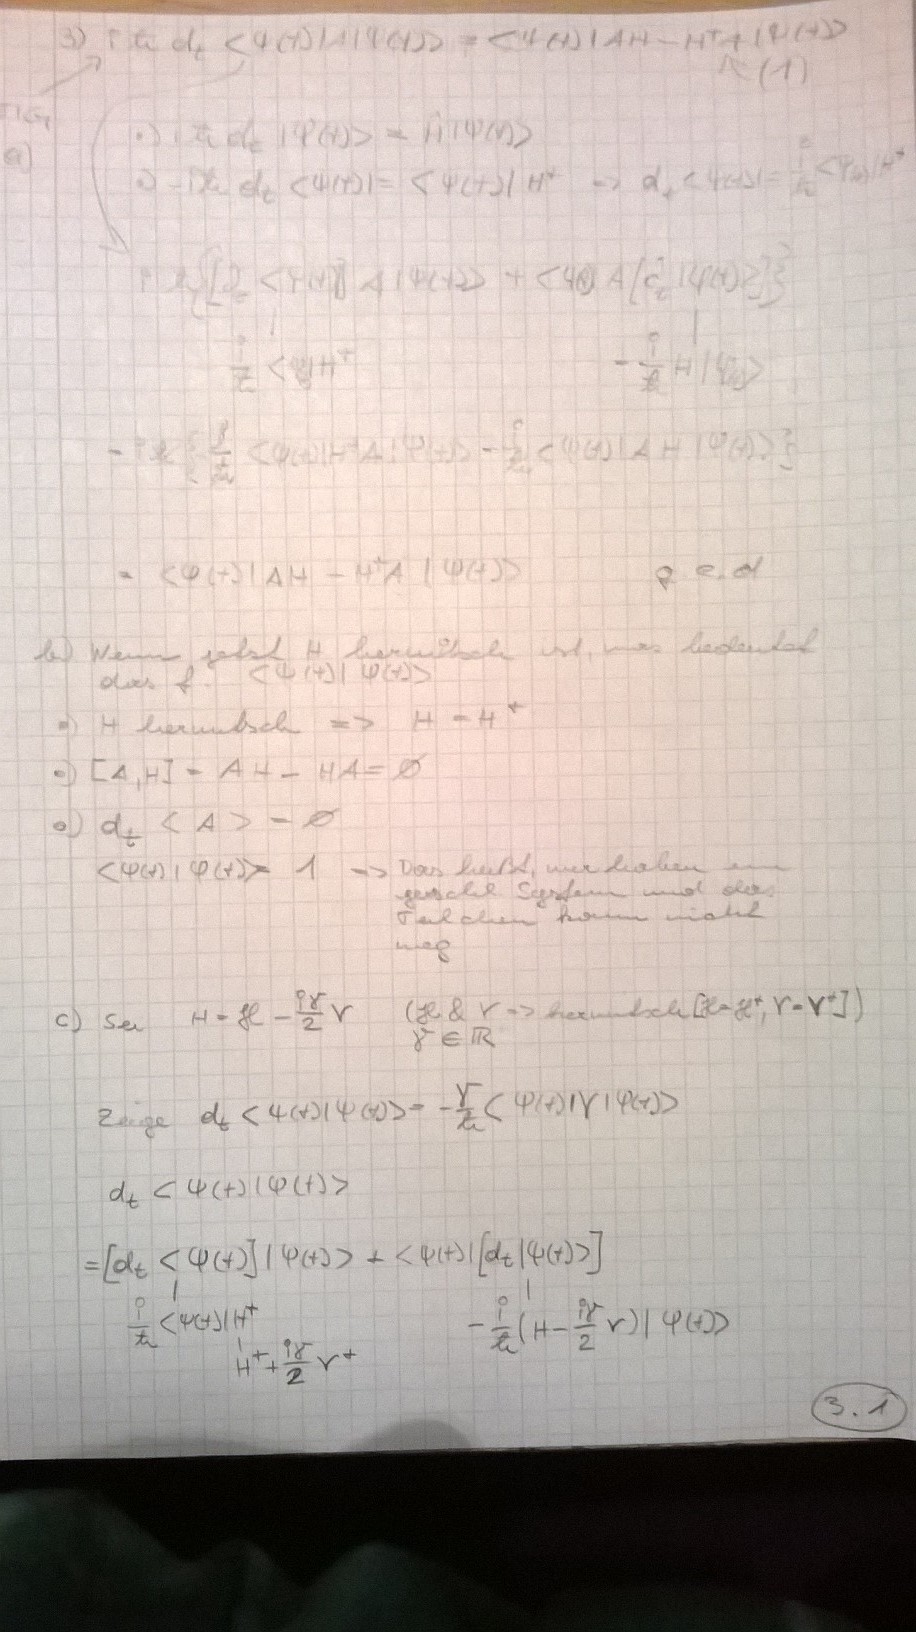 3) iħ d_t <ψ(t)|A|ψ(t)> = <ψ(t)|AH - H⁺A|ψ(t)>
(1)
a)
•) iħ d_t |ψ(t)> = H|ψ(t)>
•) -iħ d_t <ψ(t)| = <ψ(t)|H⁺ => d_t <ψ(t)| = i/ħ <ψ(t)|H⁺
iħ{[∂_t <ψ(t)|] A|ψ(t)> + <ψ(t)|A[∂_t |ψ(t)>]}
i/ħ <ψ|H⁺ - i/ħ H|ψ(t)>
= iħ{i/ħ <ψ(t)|H⁺A|ψ(t)> - i/ħ <ψ(t)|AH|ψ(t)>}
= <ψ(t)|AH - H⁺A|ψ(t)> q.e.d
b) Wenn jetzt H hermitsch ist, was bedeutet
das f. <ψ(t)|ψ(t)>
•) H hermitsch => H = H⁺
•) [A,H] = AH - HA = ∅
•) d_t <A> = ∅
<ψ(t)|ψ(t)> = 1 => Das heißt, wir haben ein
geschl System und das
Teilchen kann nicht
weg
c) Sei H = ℋ - iγ/2 V (ℋ & V => hermitsch [ℋ=ℋ⁺, V=V⁺])
γ ∈ ℝ
Zeige d_t <ψ(t)|ψ(t)> = - γ/ħ <ψ(t)|V|ψ(t)>
d_t <ψ(t)|ψ(t)>
= [d_t <ψ(t)]|ψ(t)> + <ψ(t)|[d_t|ψ(t)>]
i/ħ <ψ(t)|H⁺ - i/ħ (H - iγ/2 V)|ψ(t)>
H⁺ + iγ/2 V⁺
3.1